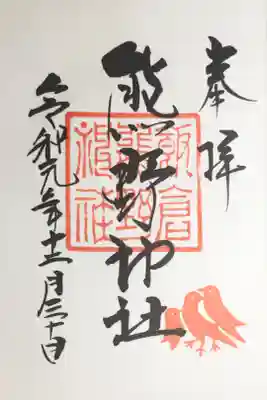 奉拝
飯倉
熊野
神社
熊野神社
令和元年十二月三十日